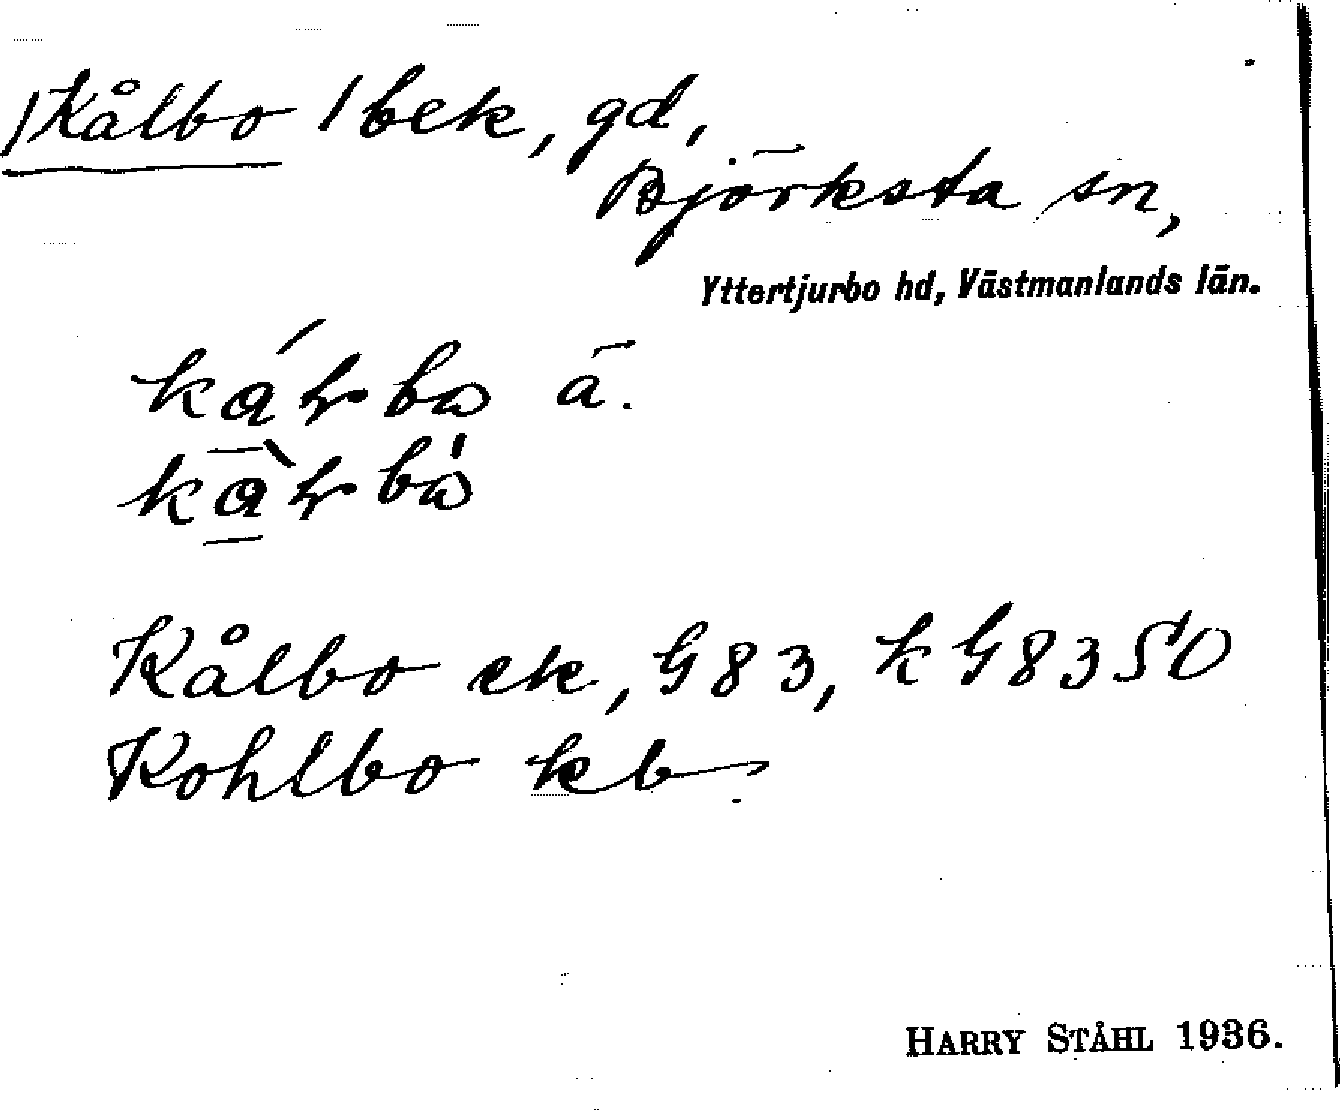 /Kålbo/ bek, gd,
Björksta sn,
Yttertjurbo hd, Västmanlands län.
ä.
Kålbo ek, G 83, k G 83 SO
Kohlbo kb
HARRY STÅHL 1936.